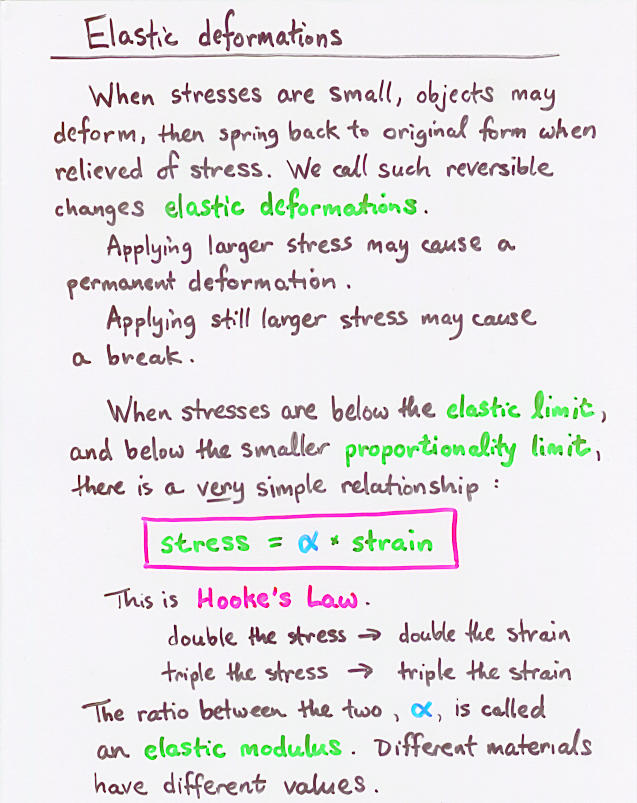 Elastic deformations
When stresses are small, objects may
deform, then spring back to original form when
relieved of stress. We call such reversible
changes elastic deformations.
Applying larger stress may cause a
permanent deformation.
Applying still larger stress may cause
a break.
When stresses are below the elastic limit,
and below the smaller proportionality limit,
there is a very simple relationship :
stress = α * strain
This is Hooke's Law.
double the stress → double the strain
triple the stress → triple the strain
The ratio between the two, α, is called
an elastic modulus. Different materials
have different values.